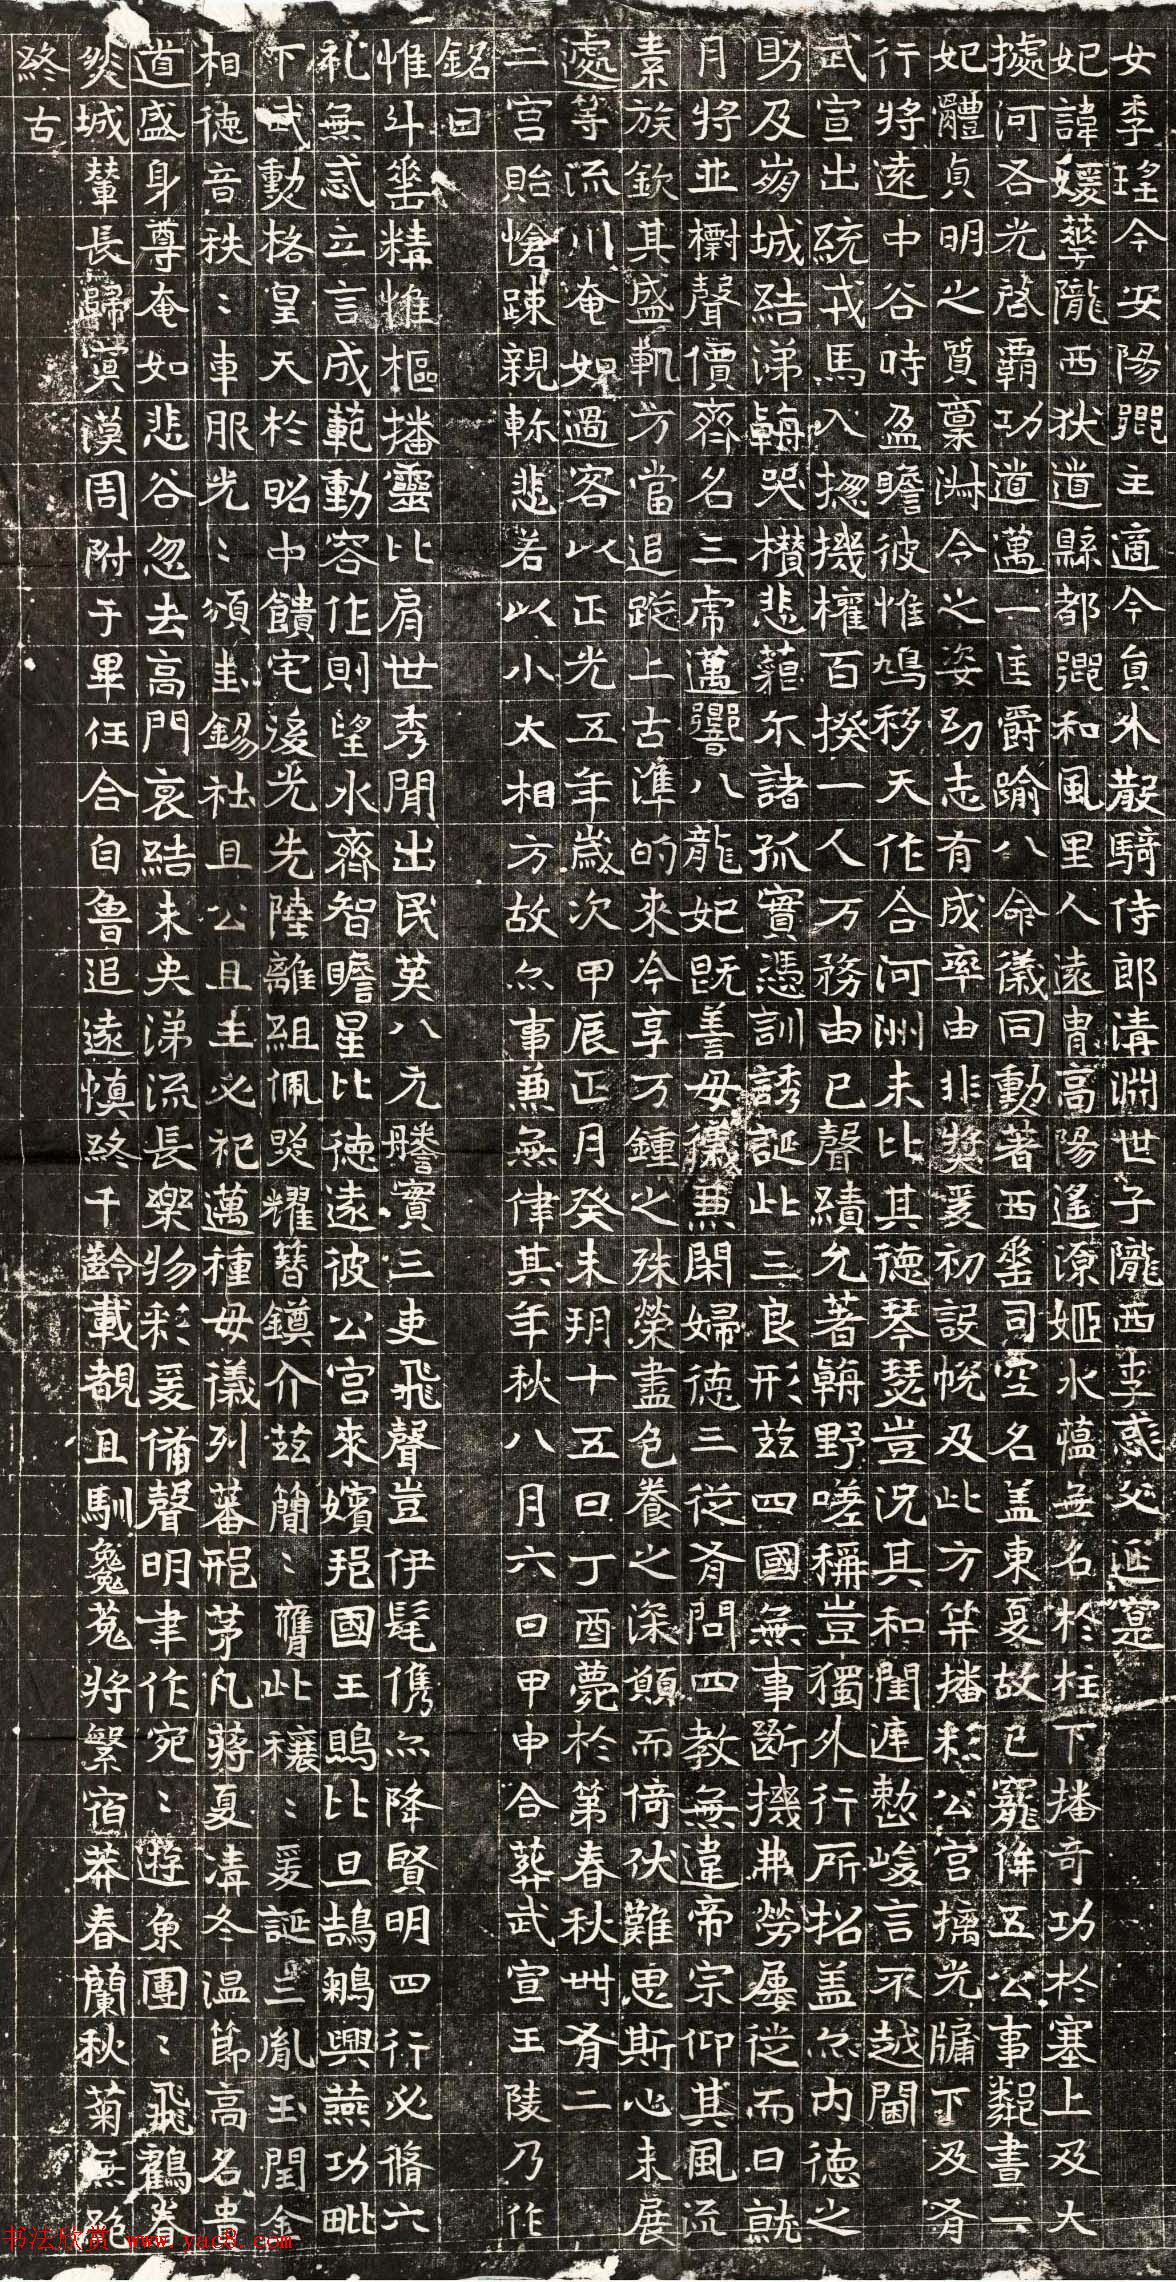 女季瑤今安陽郡主適今員外散騎侍郎清淵世子隴西李彧父延寔
妃諱媛華隴西狄道縣都鄉和風里人遠胄高陽遙源姬水蘊無名於柱下播奇功於塞上及大
據河各光啓霸功道萬一匡爵踰八命儀同勳著西垂司空名盖東夏故已窺侔五公事鄰晝一
妃體貞明之質稟淋令之姿幼志有成率由非奬爰初設帨及此方笄播穆公宮摛光牖下及有
行將遠中谷時盈瞻彼惟鳩移天作合河洲未比其德琴瑟豈況其和閨庭愸峻言不越閫
武宣出統戎馬入揔機權百揆一人万務由已聲績允著朝野嗟稱豈獨外行所招盖亦內德之
助及崩城結涕晦哭櫕悲藐尒諸孤實憑訓誘誕此三良形茲四國無事斷機弗勞屢從而日就
月將並櫥聲價齊名三虎邁響八龍妃旣善母儀兼閑婦德三從有問四教無違帝宗仰其風流
素族欽其盛軌方當追蹤上古準的來今享万鍾之殊榮盡色養之深願而倚伏難思斯心未展
處等流川奄如過客以正光五年歲次甲辰正月癸未玥十五日丁酉薨於第春秋卌有二
二宮貽愴踈親軫悲若以小太相方故亦事兼無俥其年秋八月六日甲申合葬武宣王陵乃作
銘曰
惟斗垂精惟樞播靈比肩世秀閒出民英八元騰實三吏飛聲豈伊髦儁亦降賢明四行必脩六
礼無忒立言成範動容作則望水齊智瞻星比德遠彼公宮來嬪㧞國王鵙比旦鵠鷯興燕功毗
下武勳格皇天於昭中饋宅後光先陸離組佩煚耀簪鐏介茲簡〻膺此穰〻爰誕三胤玉閏金
相德音秩〻車服光〻頒圭錫社且公且王必祀邁種母儀列蕃邢茅凡蔣夏凊冬温節高名貴
道盛身尊奄如悲谷忽去高門哀結未央涕流長樂物彩爰備聲明聿作宛〻遊魚團〻飛鶴眷
焱城輦長歸寞漠周附于畢任合自魯追遠慎終千齡載覩且馴㕙菟將繄宿莽春蘭秋菊無絶
終古